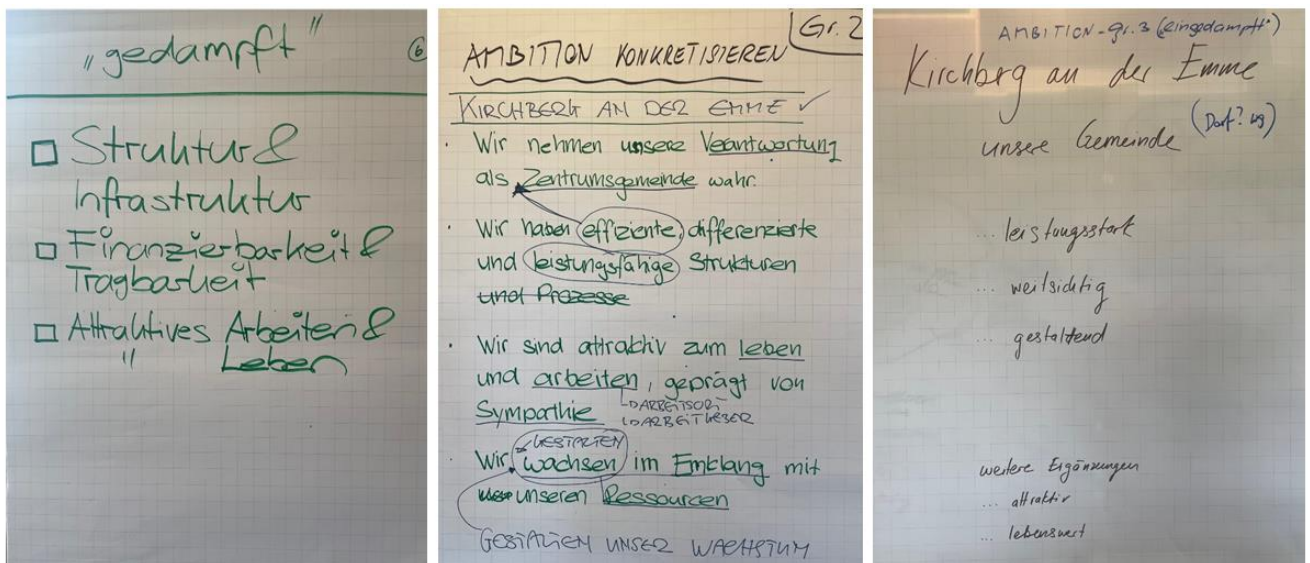 „gedampft"
6
□ Struktur &
Infrastruktur
□ Finanzierbarkeit &
Tragbarkeit
□ Attraktives Arbeiten &
" Leben
Gr. 2
AMBITION KONKRETISIEREN
KIRCHBERG AN DER EMME ✓
· Wir nehmen unsere Verantwortung
als Zentrumsgemeinde wahr.
· Wir haben effiziente, differenzierte
und leistungsfähige Strukturen
und Prozesse
· Wir sind attraktiv zum leben
und arbeiten, geprägt von
Sympathie
ARBEITSORT
ARBEITGEBER
GESTALTEN
· Wir wachsen im Einklang mit
unseren Ressourcen
GESTALTEN UNSER WACHSTUM
AMBITION - Gr. 3 („eingedampft")
Kirchberg an der Emme
(Dorf?)
unsere Gemeinde
... leistungsstark
... weitsichtig
... gestaltend
weitere Ergänzungen
... attraktiv
... lebenswert